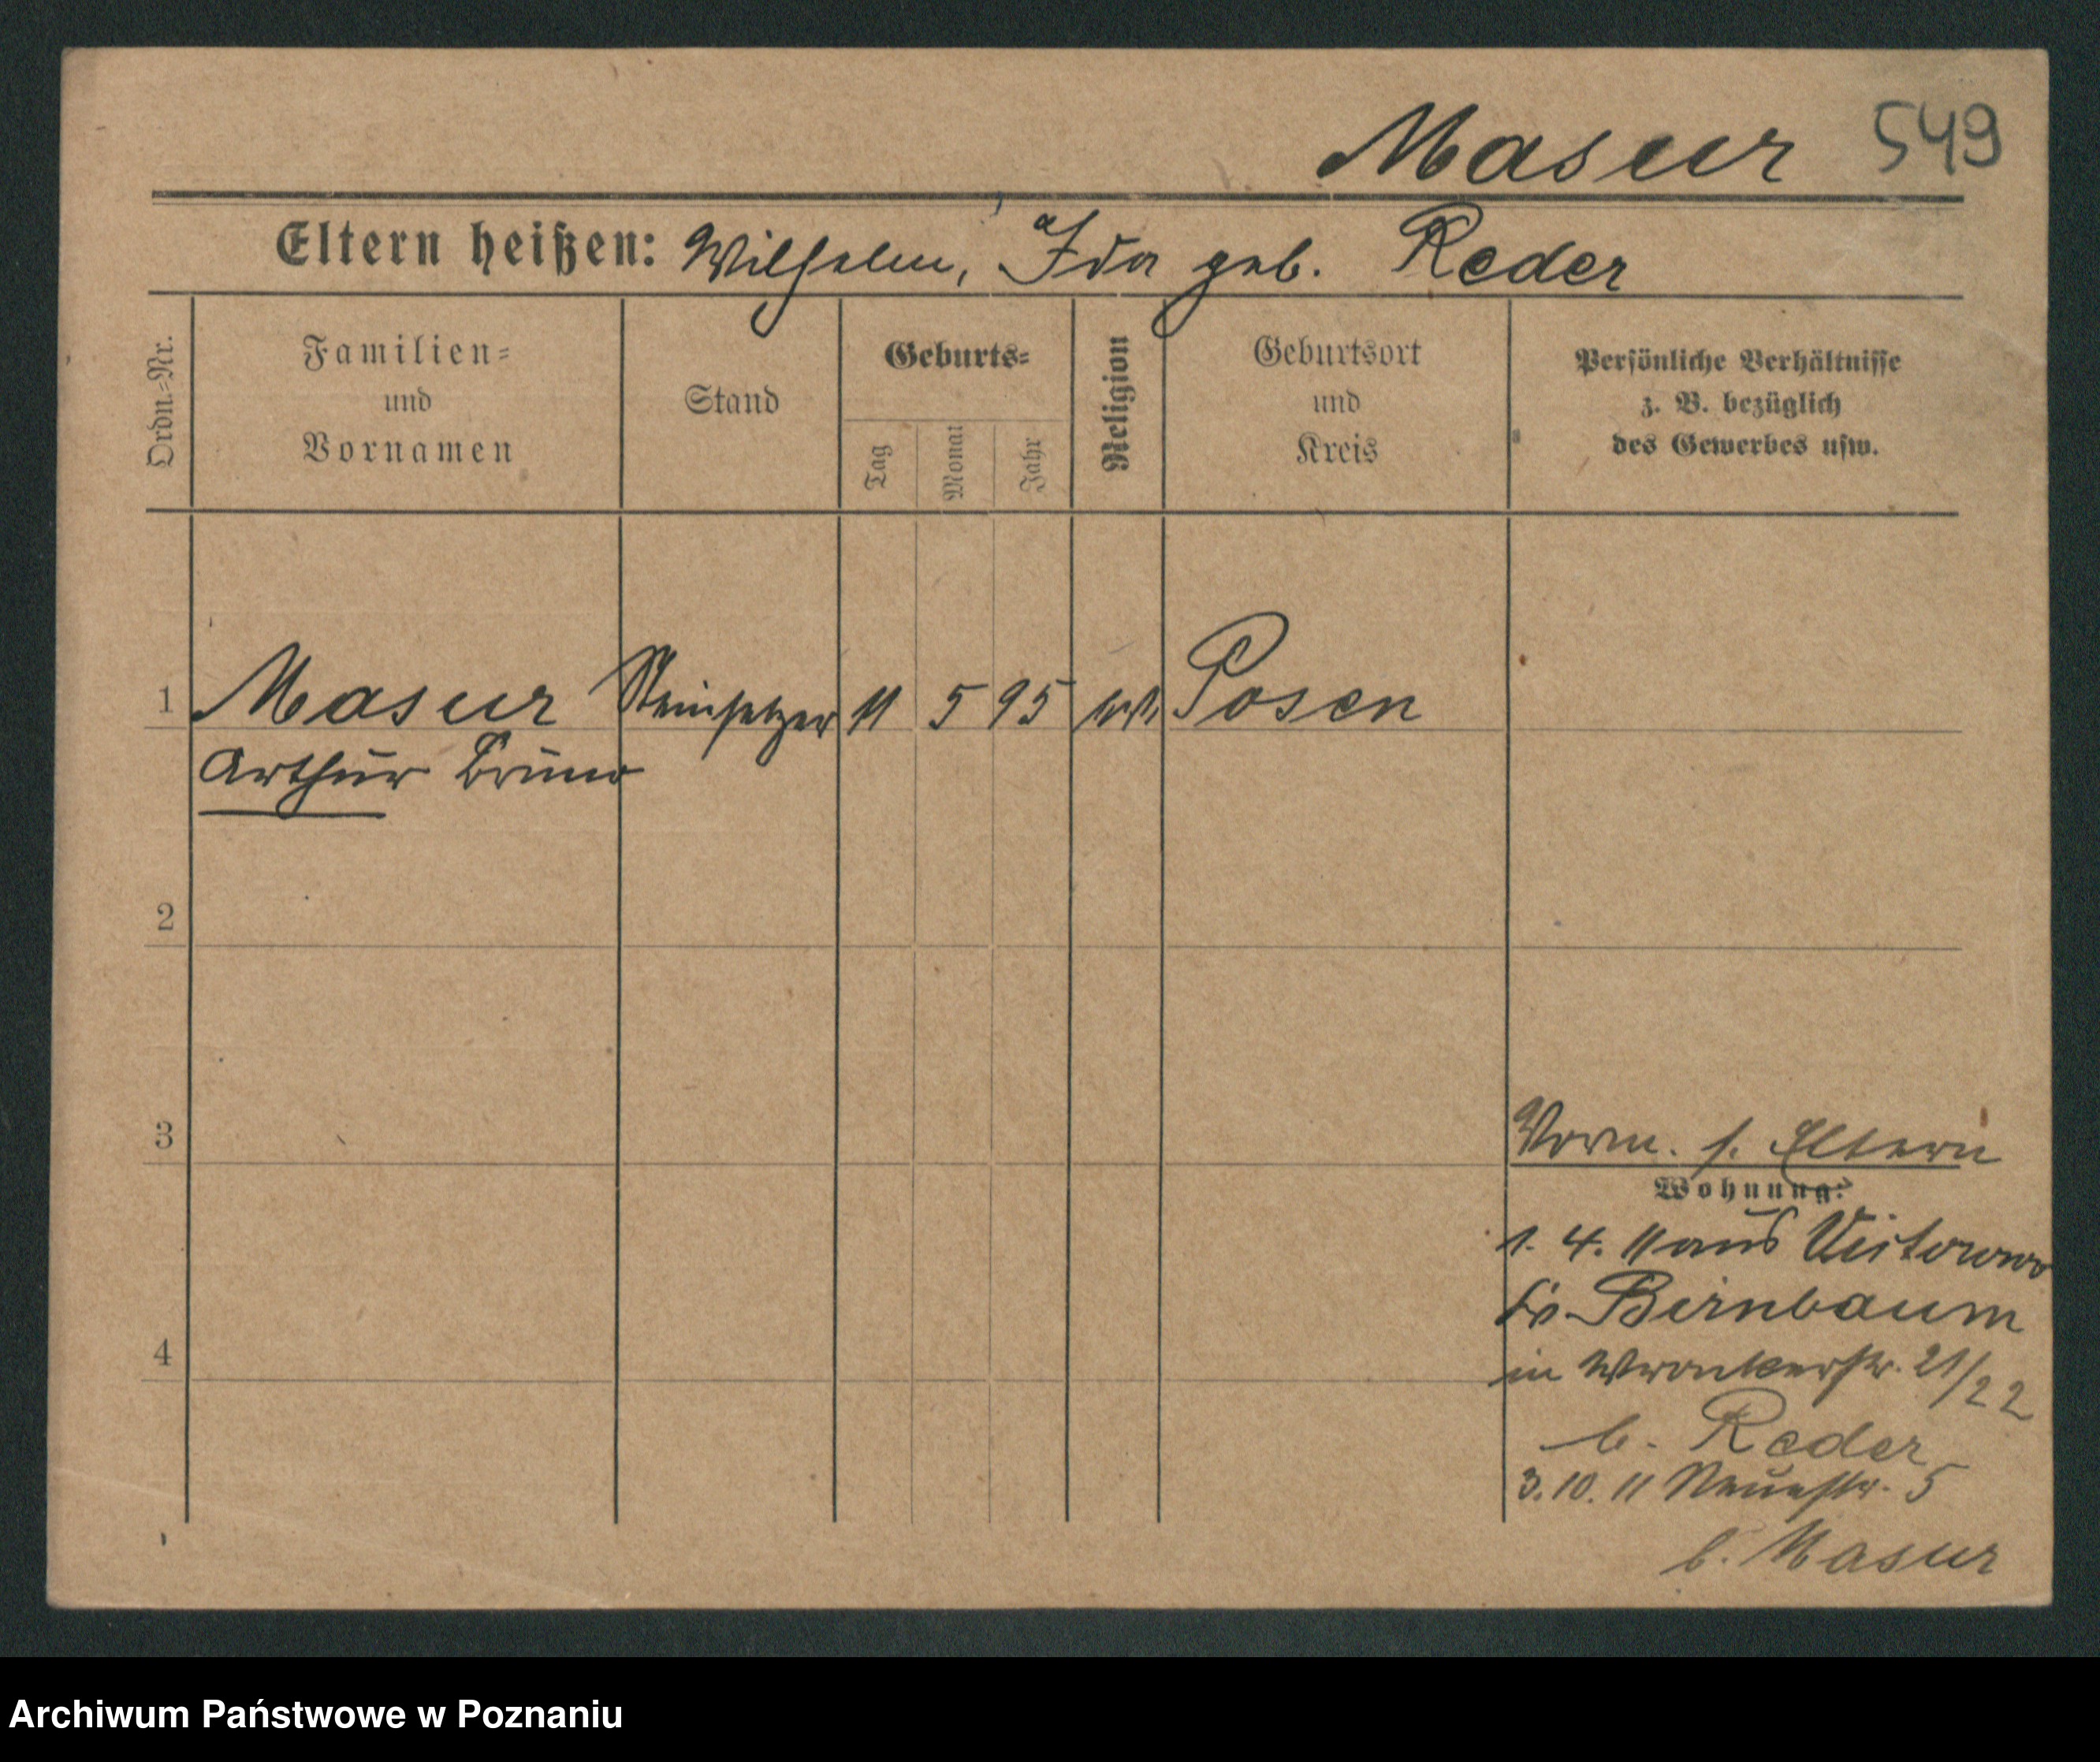 Masur 549
Eltern heißen: Wilhelm, Ida geb. Reder
Ordn.=Nr.
Familien=
und
Vornamen
Stand
Geburts=
Tag
Monat
Jahr
Religion
Geburtsort
und
Kreis
Persönliche Verhältnisse
z. B. bezüglich
des Gewerbes usw.
1 Masur Steinsetzer 11 5 95 Posen
Arthur Bruno
2
3
Vorm. s. Eltern
Wohnung:
1. 4. 11 aus
Birnbaum
4
in Wronkerstr. 21/22
b. Reder
3. 10. 11 Neuestr. 5
b. Masur
Archiwum Państwowe w Poznaniu